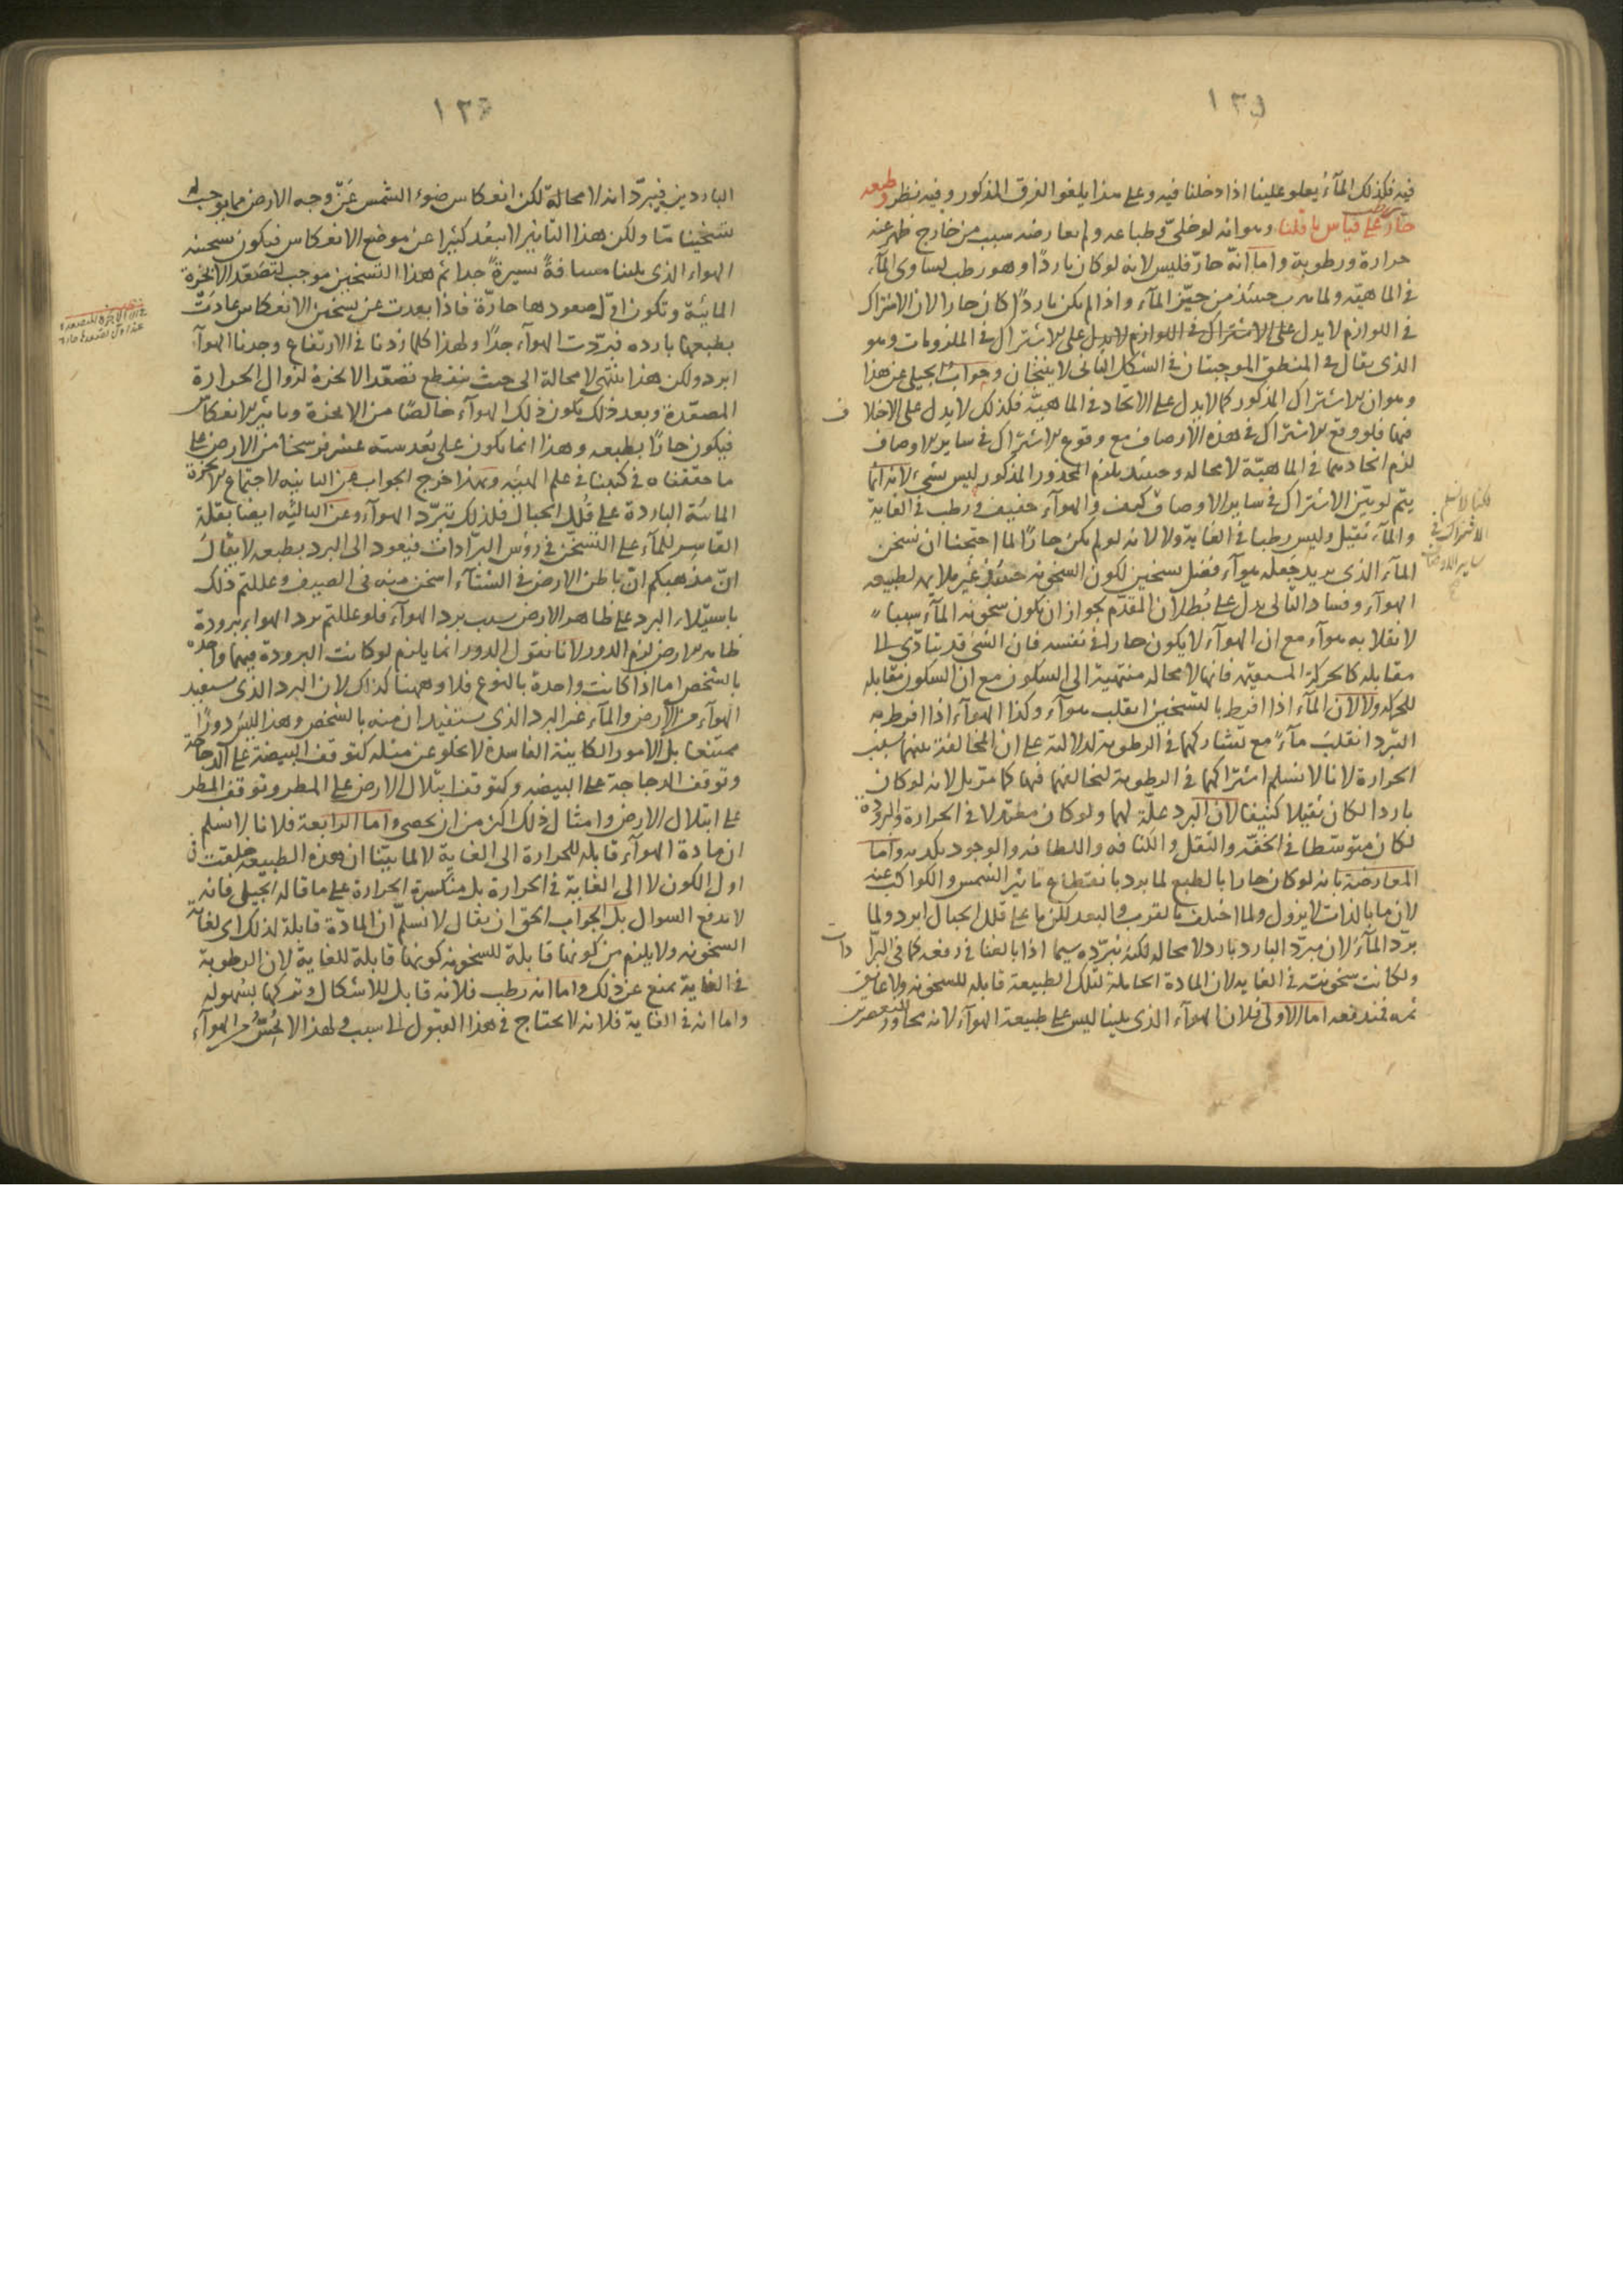 ١٣٥
فيه فكذلك المآء يعلو علينا اذا دخلنا فيه وعلى هذا يلغو الفرق المذكور وفيه نظر وطبعه
حار رطب على قياس ما قلنا وهو انه لو خلى وطباعه ولم يعارضه سبب من خارج ظهر عنه
حرارة ورطوبة واما انه حارّ فليس لانه لو كان باردًا وهو رطب لساوى المآء
فى الماهيّة ولما هرب حينئذ من حيّز المآء واذا لم يكن باردًا كان حارا لان الاشتراك
فى اللوازم لا يدل على الاشتراك فى الملزومات وهو
الذى يقال فى المنطق الموجبتان فى الشكل الثانى لا ينتجان وجواب الجيلى عن هذا
وهو ان الاشتراك المذكور كما لا يدل على الاتحاد فى الماهيّة فكذلك لا يدل على الاختلاف
فيها فلو وقع الاشتراك فى هذه الاوصاف مع وقوع الاشتراك فى ساير الاوصاف
لزم اتحادهما فى الماهيّة لا محاله وحينئذ يلزم المحذور المذكور ليس بشىء لانه انما
يتم لو بيّن الاشتراك فى ساير الاوصاف كيف والهوآء خفيف رطب فى الغاية
والمآء ثقيل وليس رطبا فى الغاية ولا لانه لو لم يكن حارًا لما احتجنا ان نسخن
المآء الذى نريد جعله هوآء فضل تسخين لكون السخونه حينئذ غير ملايمه لطبيعه
الهوآء وفساد التالى يدل على بطلان المقدم لجواز ان يكون سخونه المآء سببا
لانقلابه هوآء مع ان الهوآء لا يكون حارا فى نفسه فان الشىء قد يتادّى الى
مقابله كالحركة المستقيمه فانها لا محاله منتهية الى السكون مع ان السكون مقابله
للحركه ولا لان المآء اذا افرط بالتسخين انقلب هوآء وكذا الهوآء اذا افرط به
التبرّد انقلب مآء مع تشاركهما فى الرطوبة لدلالته على ان المخالفة بينهما بسبب
الحرارة لانا لا نسلم اشتراكهما فى الرطوبة لتخالفهما فيها كما مرّ بل لانه لو كان
باردا لكان ثقيلا كثيفا لان البرد علّة لهما ولو كان معتدلا فى الحرارة والبرودة
لكان متوسّطا فى الخفة والثقل والكثافه واللطافه والوجود يكذبه واما
المعارضة بانه لو كان حارا بالطبع لما برد بانقطاع تاثير الشمس والكواكب عنه
لان ما بالذات لا يزول ولما اختلف بالقرب والبعد لكن ما على قلل الجبال ابرد ولما
برّد المآء لان مبرّد البارد بارد لا محاله لكنه يبرّده سيما اذا بالغنا فى رفعه كما فى البرّادات
ولكانت سخونته فى الغايه لان المادة الحاملة لتلك الطبيعة قابله للسخونه ولا عايق
ثمه فمندفعه اما الاولى فلان الهوآء الذى يلينا ليس على طبيعة الهوآء لانه مجاور للعنصرين
لكنا لا نسلم
الاشتراك فى
ساير الاوصاف
١٣٦
الباردين فيبرّدانه لا محالة لكن انعكاس ضوء الشمس عن وجه الارض مما يوجب له
تسخينا ما ولكن هذا التاثير لا يبعد كثيرا عن موضع الانعكاس فيكون تسخينه
الهواء الذى يلينا مسافةً يسيرةً جدا ثم هذا التسخين موجب لتصعّد الابخرة
المائيّة وتكون اوّل صعودها حارّة فاذا بعدت عن تسخين الانعكاس عادت
بطبعها بارده فبرّدت الهوآء جدًا ولهذا كلما زدنا فى الارتفاع وجدنا الهوآء
ابرد ولكن هذا ينتهى لا محالة الى حيث ينقطع تصعّد الابخرة لزوال الحرارة
المصعّدة وبعد ذلك يكون ذلك الهوآء خالصًا من الابخرة وتاثير الانعكاس
فيكون حارًا بطبعه وهذا انما يكون على بُعد سته عشر فرسخا من الارض على
ما حققناه فى كتبنا فى علم الهيئه وبهذا خرج الجواب عن الثانيه لاجتماع الابخرة
المائيّة الباردة على قُلل الجبال فلذلك تبرّد الهوآء وعن الثالثه ايضا بقلة
القاسر للمآء على التسخّن فى رؤس البرّادات فيعود الى البرد بطبعه لا يقال
انّ مذهبكم انّ باطن الارض فى الشتآء اسخن منه فى الصيف وعللتم ذلك
باستيلاء البرد على ظاهر الارض بسبب برد الهوآء فلو عللتم برد الهواء ببرودة
ظاهر الارض لزم الدور لانا نقول الدور انما يلزم لو كانت البرودة فيهما واحده
بالشخص اما اذا كانت واحدة بالنوع فلا وههنا كذلك لان البرد الذى يستفيد
الهوآء من الارض والمآء غير البرد الذى يستفيدان منه بالشخص وهذا ليس دورًا
ممتنعا بل الامور الكاينة الفاسدة لا تخلو عن مثله كتوقف البيضة على الدجاجة
وتوقف الدجاجة على البيضه وكتوقف ابتلال الارض على المطر وتوقف المطر
على ابتلال الارض وامثال ذلك اكثر من ان يحصى واما الرابعة فلانا لا نسلم
ان مادة الهوآء قابله للحرارة الى الغاية لا لما بيّنا ان هذه الطبيعه خلقت فى
اول الكون لا الى الغاية فى الحرارة بل منكسرة الحرارة على ما قاله الجيلى فانه
لا يدفع السوال بل الجواب الحق ان يقال لا نسلّم ان المادّة قابلة لذلك اى لغاية
السخونه ولا يلزم من كونها قابلة للسخونه كونها قابلة للغاية لان الرطوبة
فى الغاية تمنع عن ذلك واما انه رطب فلانه قابل للاشكال وتركها بسهوله
واما انه فى الغاية فلانه لا يحتاج فى هذا القبول الى سبب ولهذا لا يُحسّ من الهوآء